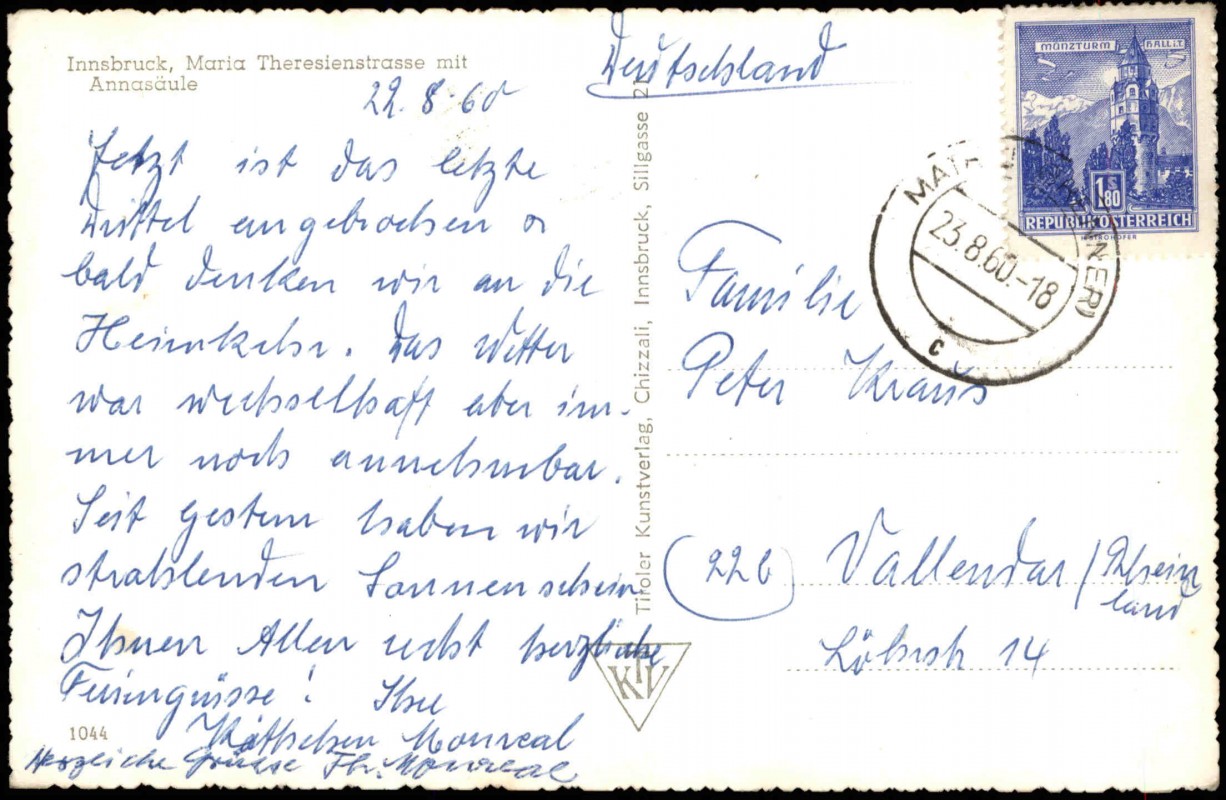 Innsbruck, Maria Theresienstrasse mit
Annasäule
22.8.60
Jetzt ist das letzte
Drittel angebrochen u
bald denken wir an die
Heimkehr. Das Wetter
war wechselhaft aber im-
mer noch annehmbar.
Seit gestern haben wir
strahlenden Sonnenschein
Ihnen Allen recht herzliche
Feriengrüsse! Ihre
Käthchen Monreal
Herzliche Grüsse Th. Monreal
1044
Tiroler Kunstverlag, Chizzali, Innsbruck, Sillgasse 21
KTV
Deutschland
MÜNZTURM HALL I.T.
1S 80
REPUBLIK ÖSTERREICH
23.8.60.-18
c
Familie
Peter Kraus
(22b) Vallendar/Rhein
land
Löhrstr 14